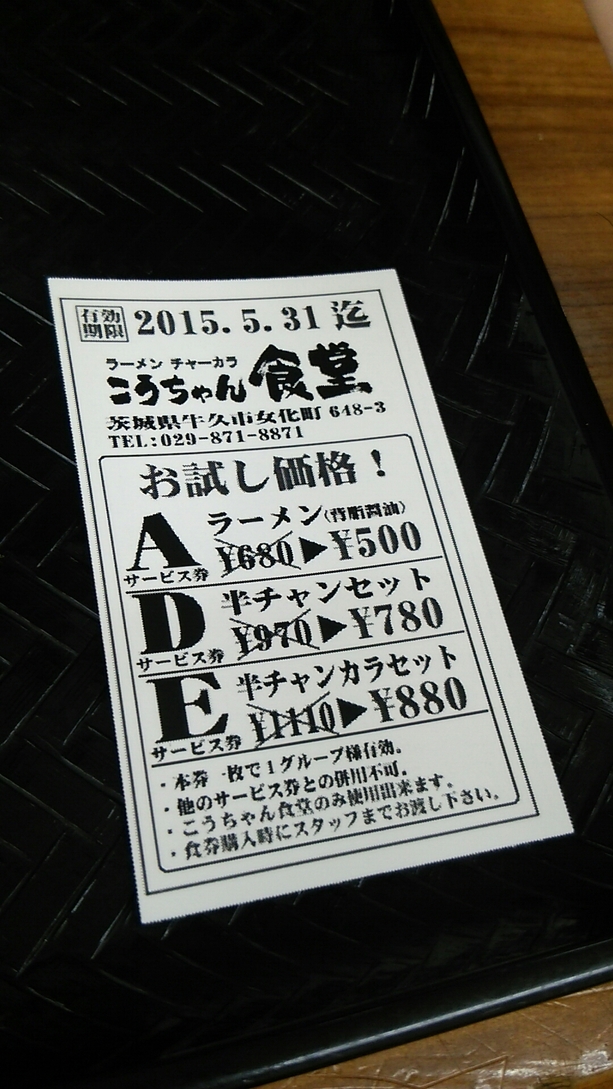 有効期限 2015.5.31 迄
ラーメン チャーカラ
こうちゃん食堂
茨城県牛久市女化町 648-3
TEL:029-871-8871
お試し価格！
A サービス券
ラーメン(背脂醤油)
¥680▶¥500
D サービス券
半チャンセット
¥970▶¥780
E サービス券
半チャンカラセット
¥1110▶¥880
・本券一枚で1グループ様有効。
・他のサービス券との併用不可。
・こうちゃん食堂のみ使用出来ます。
・食券購入時にスタッフまでお渡し下さい。